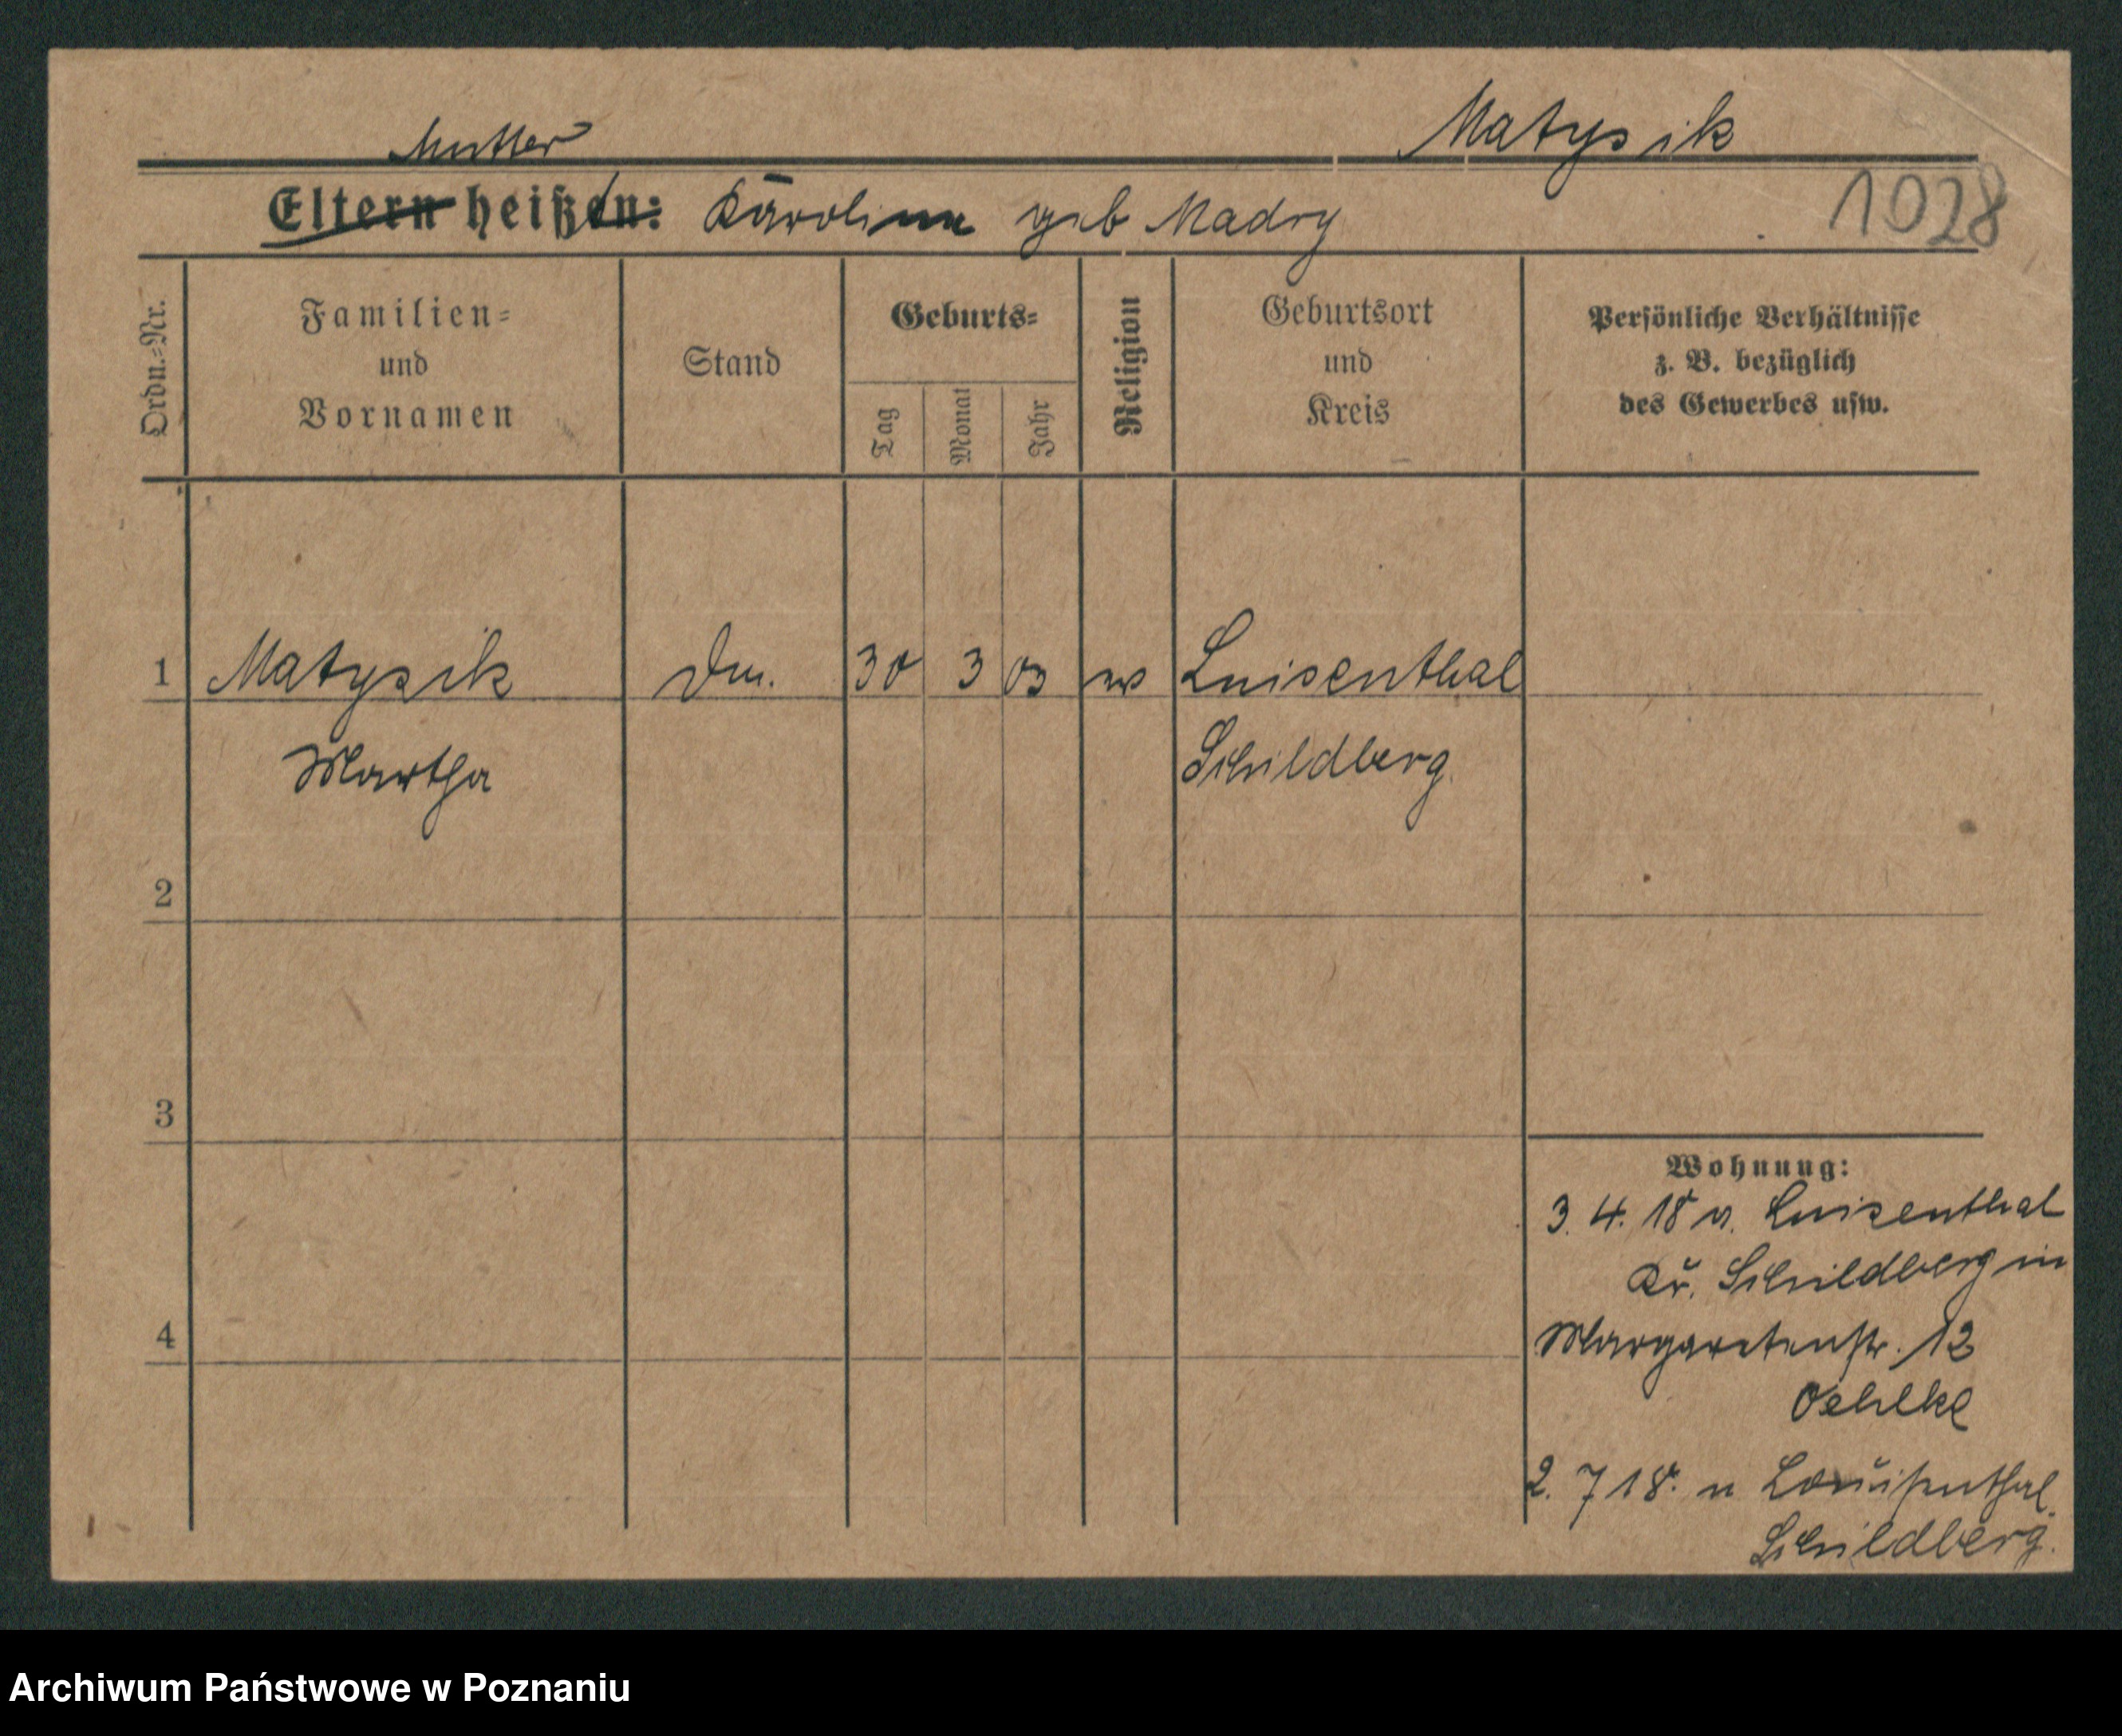 Mutter Matysik
Eltern heißen: Karoline geb Madry
1028
Ordn.-Nr.
Familien-
und
Vornamen
Stand
Geburts-
Tag
Monat
Jahr
Religion
Geburtsort
und
Kreis
Persönliche Verhältnisse
z. B. bezüglich
des Gewerbes usw.
1 Matysik 30 3 03 Luisenthal
Martha Schildberg
2
3
4
Wohnung:
3. 4. 18 v. Luisenthal
Kr. Schildberg in
Margaretenstr. 12
Oehlke
2. 7 18. n Louisenthal
Schildberg.
Archiwum Państwowe w Poznaniu